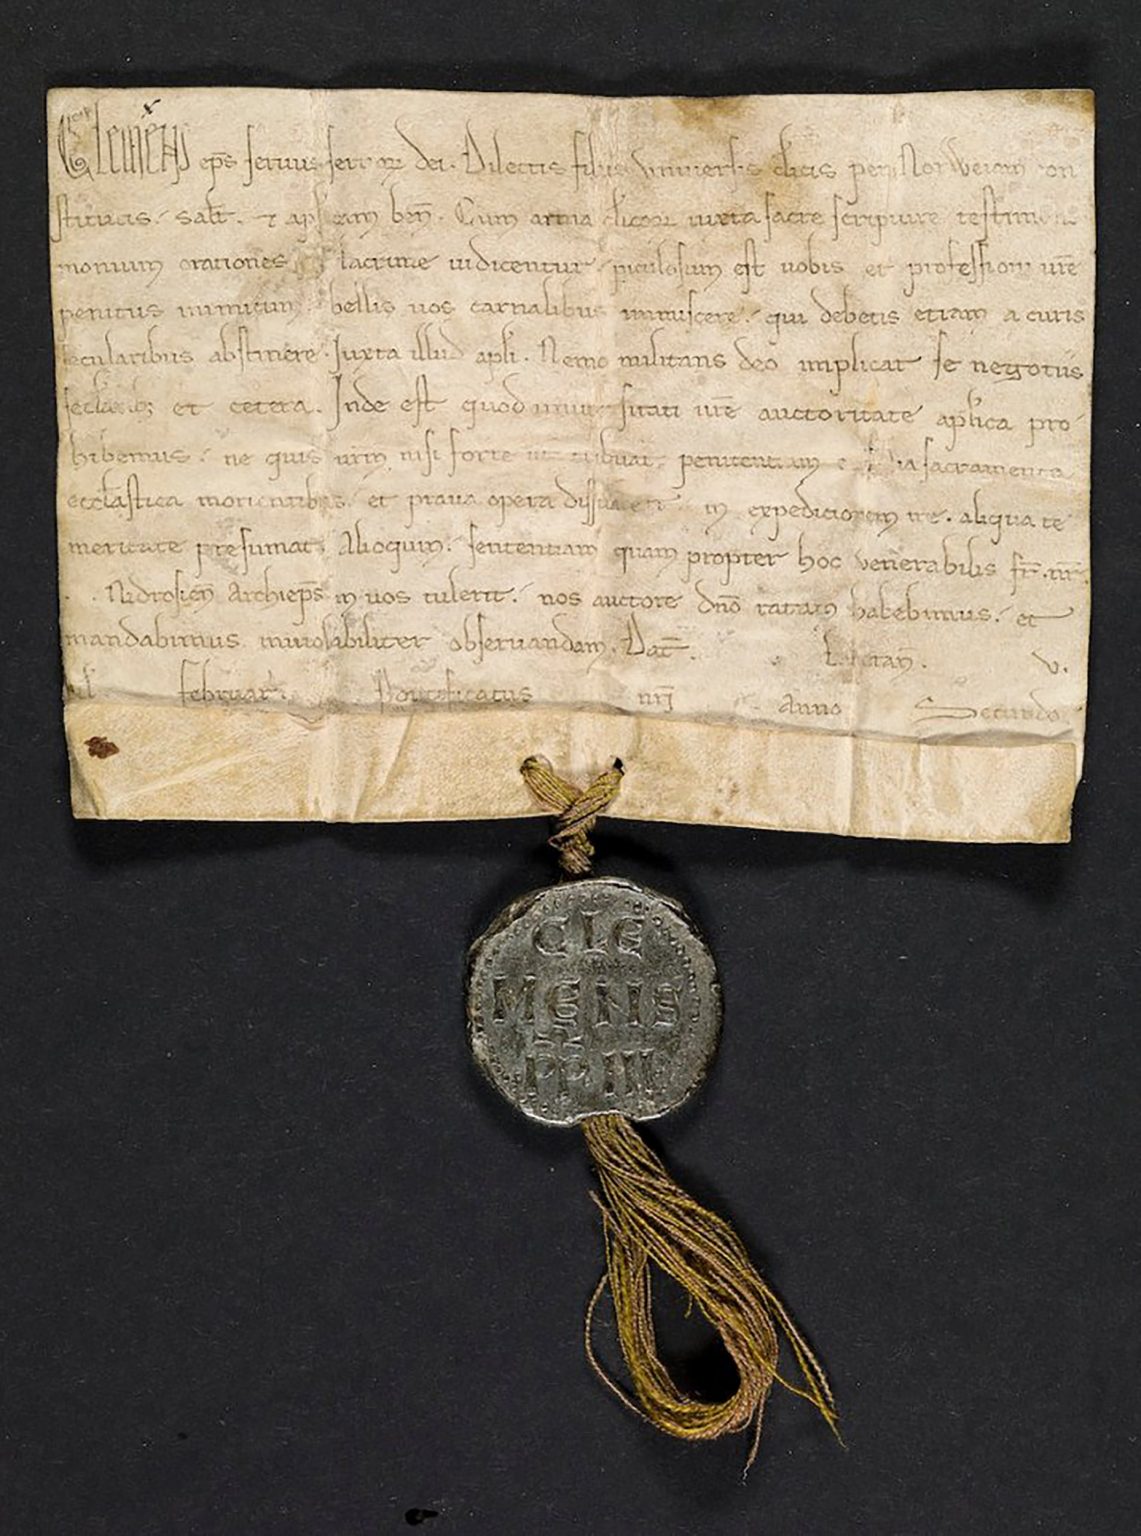 Clemens eps seruus seruorꝝ dei. Dilectis filiis vniuersis clicis per Norweiam con
stitutis. salt. et apl̃icam ben̄. Cum arma clicoꝝ iuxta sacre scripture testim
monium orationes et lacrime iudicentur. piculosum est uobis et professioni ur̄e
penitus inimicum. bellis uos carnalibus inmiscere. qui debetis etiam a curis
secularibus abstinere. Juxta illud apli. Nemo militans deo implicat se negotiis
secl̃arib; et cetera. Inde est quod uniuersitati ur̄e auctoritate aplica pro
hibemus. ne quis ur̄m nisi forte ut tribuat penitentiam et alia sacramenta
eccl̃astica morientibus. et praua opera dissuadeat in expeditionem ire. aliqua te
meritate presumat. Alioquin. sententiam quam propter hoc venerabilis fr̄. nr̄.
. . Nidrosien̄ Archiep̄s in uos tulerit. nos auctore dn̄o ratam habebimus. et
mandabimus inuiolabiliter obseruandam. Dat̄. Lateran̄. v.
kl februar. Pontificatus nr̄j Anno Secundo
CLE
MENS
PP III